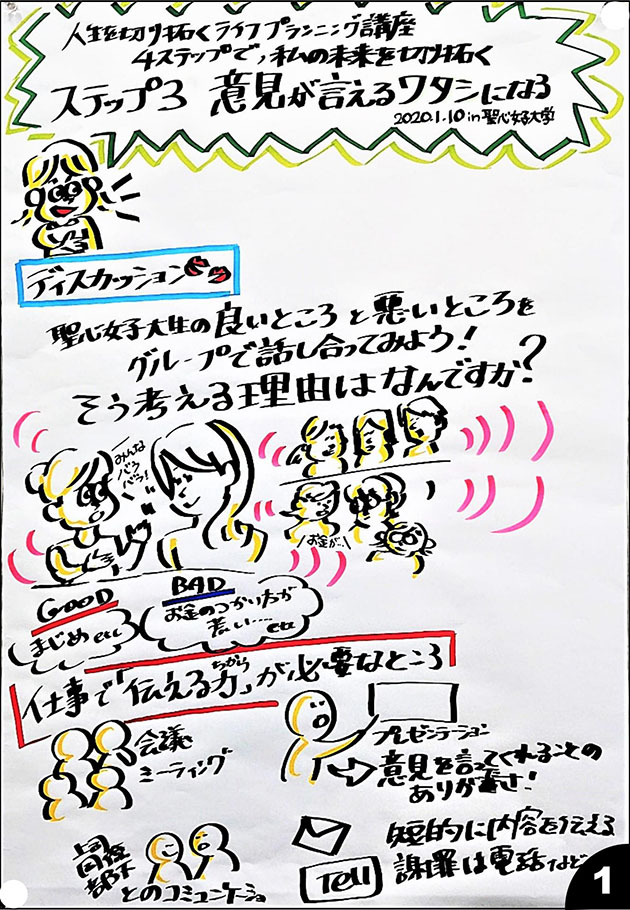 人生を切り拓くライフプランニング講座
4ステップで,私の未来を切り拓く
ステップ3 意見が言えるワタシになる
2020.1.10 in 聖心女子大学
ディスカッション
聖心女子大生の良いところと悪いところを
グループで話し合ってみよう!
そう考える理由はなんですか?
みんな
バラ
バラ!
お金が…
GOOD
まじめ etc
BAD
お金のつかい方が
荒い…. etc
仕事で「伝える力」が必要なところ
ちから
会議
ミーティング
プレゼンテーション
意見を言ってくれることの
ありが重さ!
上司
同僚
部下
とのコミュニケーショ
Tell
短的に内容を伝える
謝罪は電話など
1